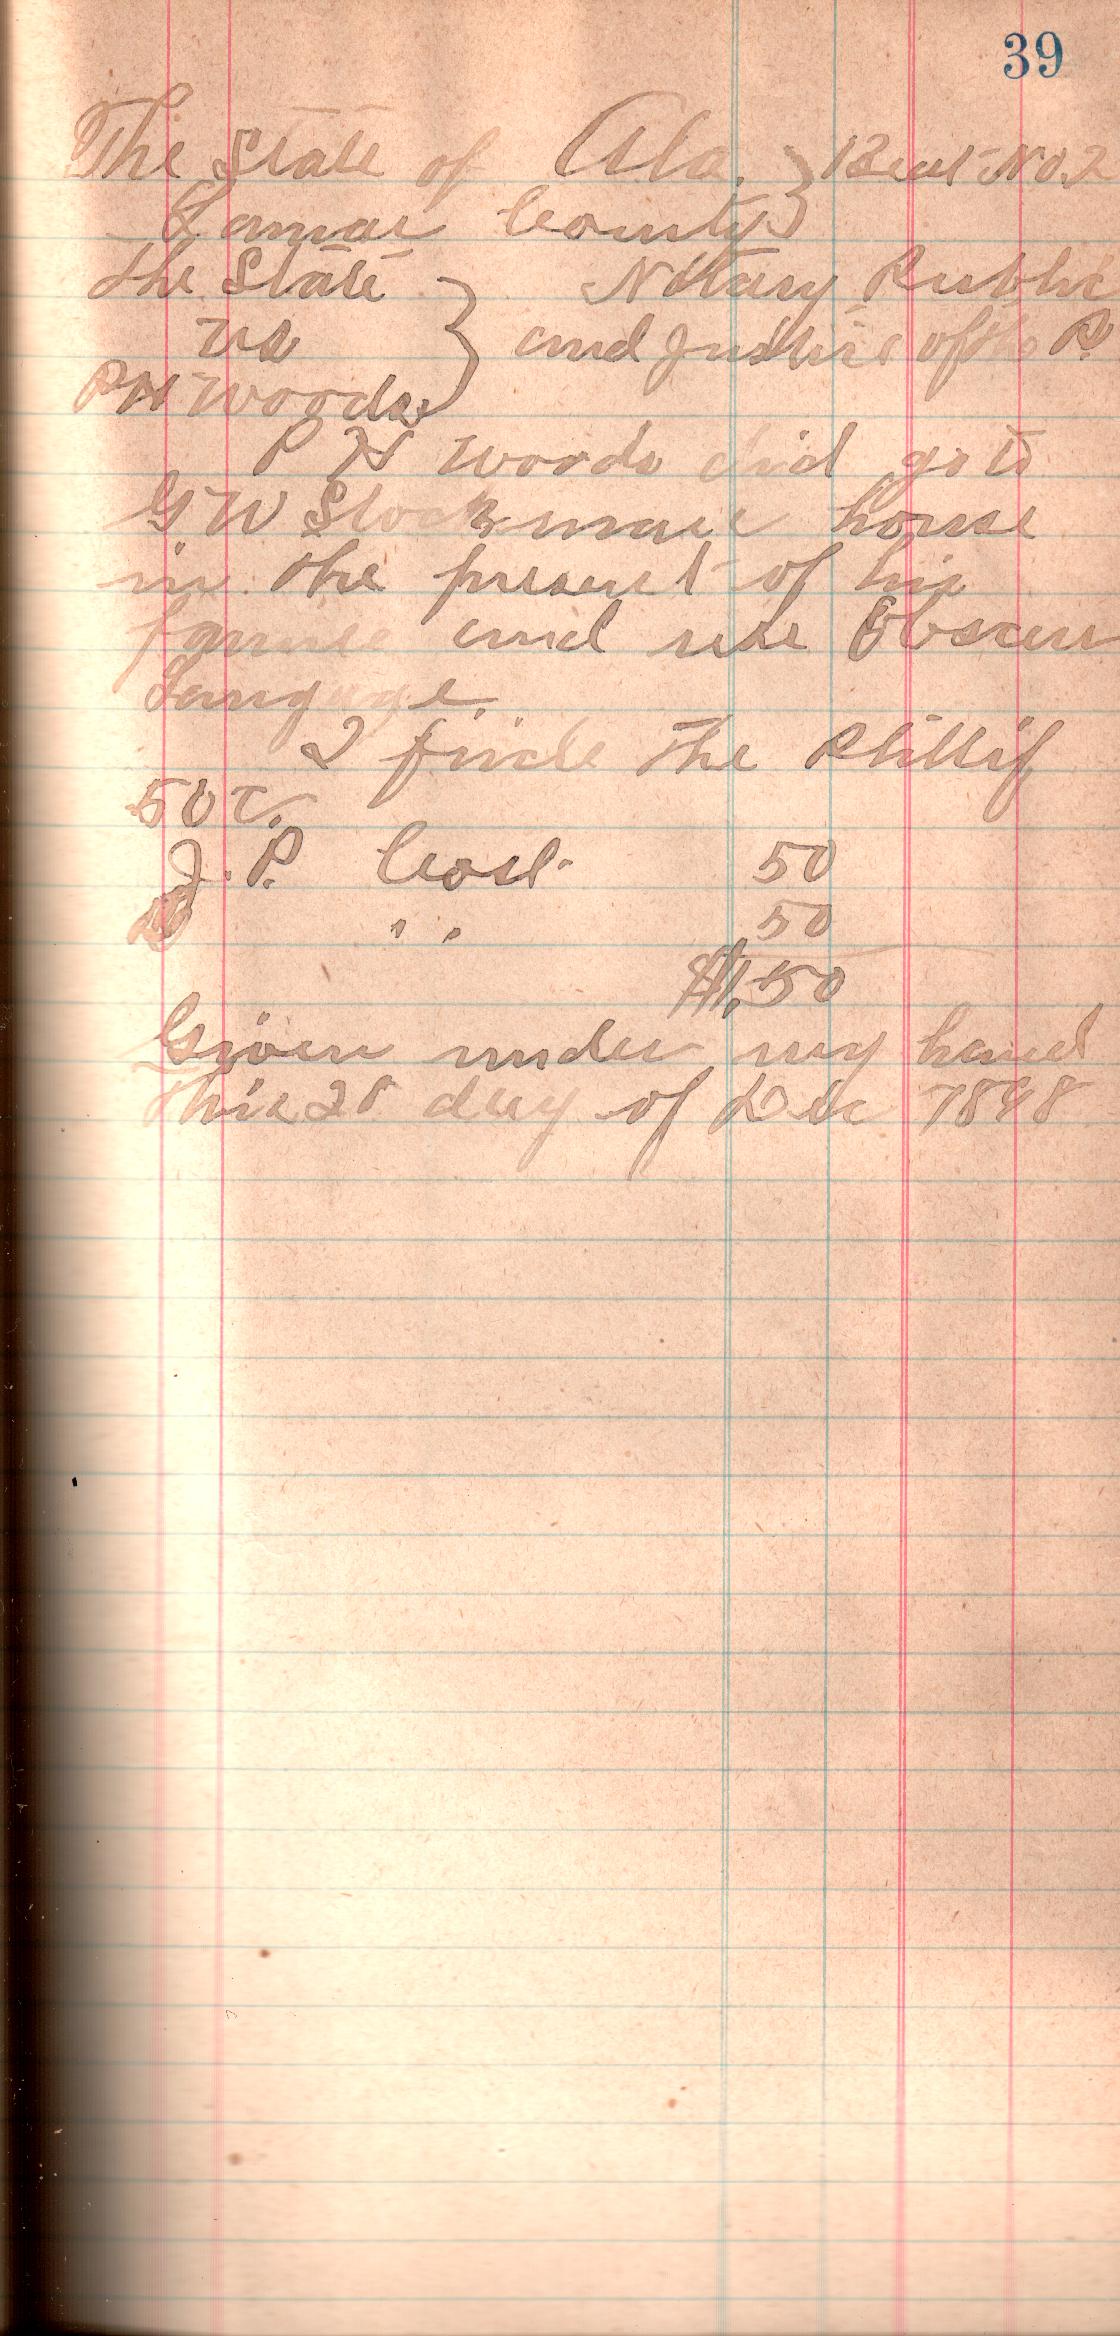 39
The State of Ala. } Beat No. 2
Lamar County }
The State } Notary Public
vs } and Justice of the P.
P H Woods }
P H Woods did go to
G W house
in the present of his
famile and use Obscen
Langage.
I finde the Plittif
50 c.
J. P. Cost. 50
" " 50
$1.50
Given under my hand
this 28 day of Dec 1898